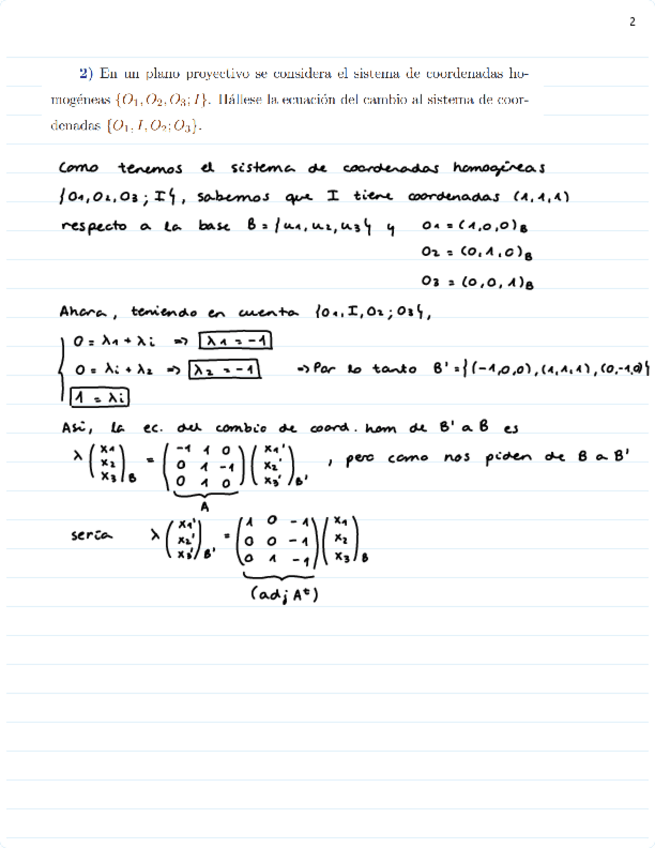 2
2) En un plano proyectivo se considera el sistema de coordenadas ho-
mogéneas {O₁, O₂, O₃; I}. Hállese la ecuación del cambio al sistema de coor-
denadas {O₁, I, O₂; O₃}.
Como tenemos el sistema de coordenadas homogéneas
{O₁, O₂, O₃; I}, sabemos que I tiene coordenadas (1,1,1)
respecto a la base B = {u₁, u₂, u₃} y O₁ = (1,0,0)_B
O₂ = (0,1,0)_B
O₃ = (0,0,1)_B
Ahora, teniendo en cuenta {O₁, I, O₂; O₃},
0 = λ₁ + λi => λ₁ = -1
0 = λi + λ₂ => λ₂ = -1 => Por lo tanto B' = {(-1,0,0), (1,1,1), (0,-1,0)}
1 = λi
Así, la ec. del cambio de coord. hom de B' a B es
λ (x₁ x₂ x₃)_B = (-1 1 0 / 0 1 -1 / 0 1 0) (x₁' x₂' x₃')_B' , pero como nos piden de B a B'
A
sería λ (x₁' x₂' x₃')_B' = (1 0 -1 / 0 0 -1 / 0 1 -1) (x₁ x₂ x₃)_B
(adj Aᵗ)